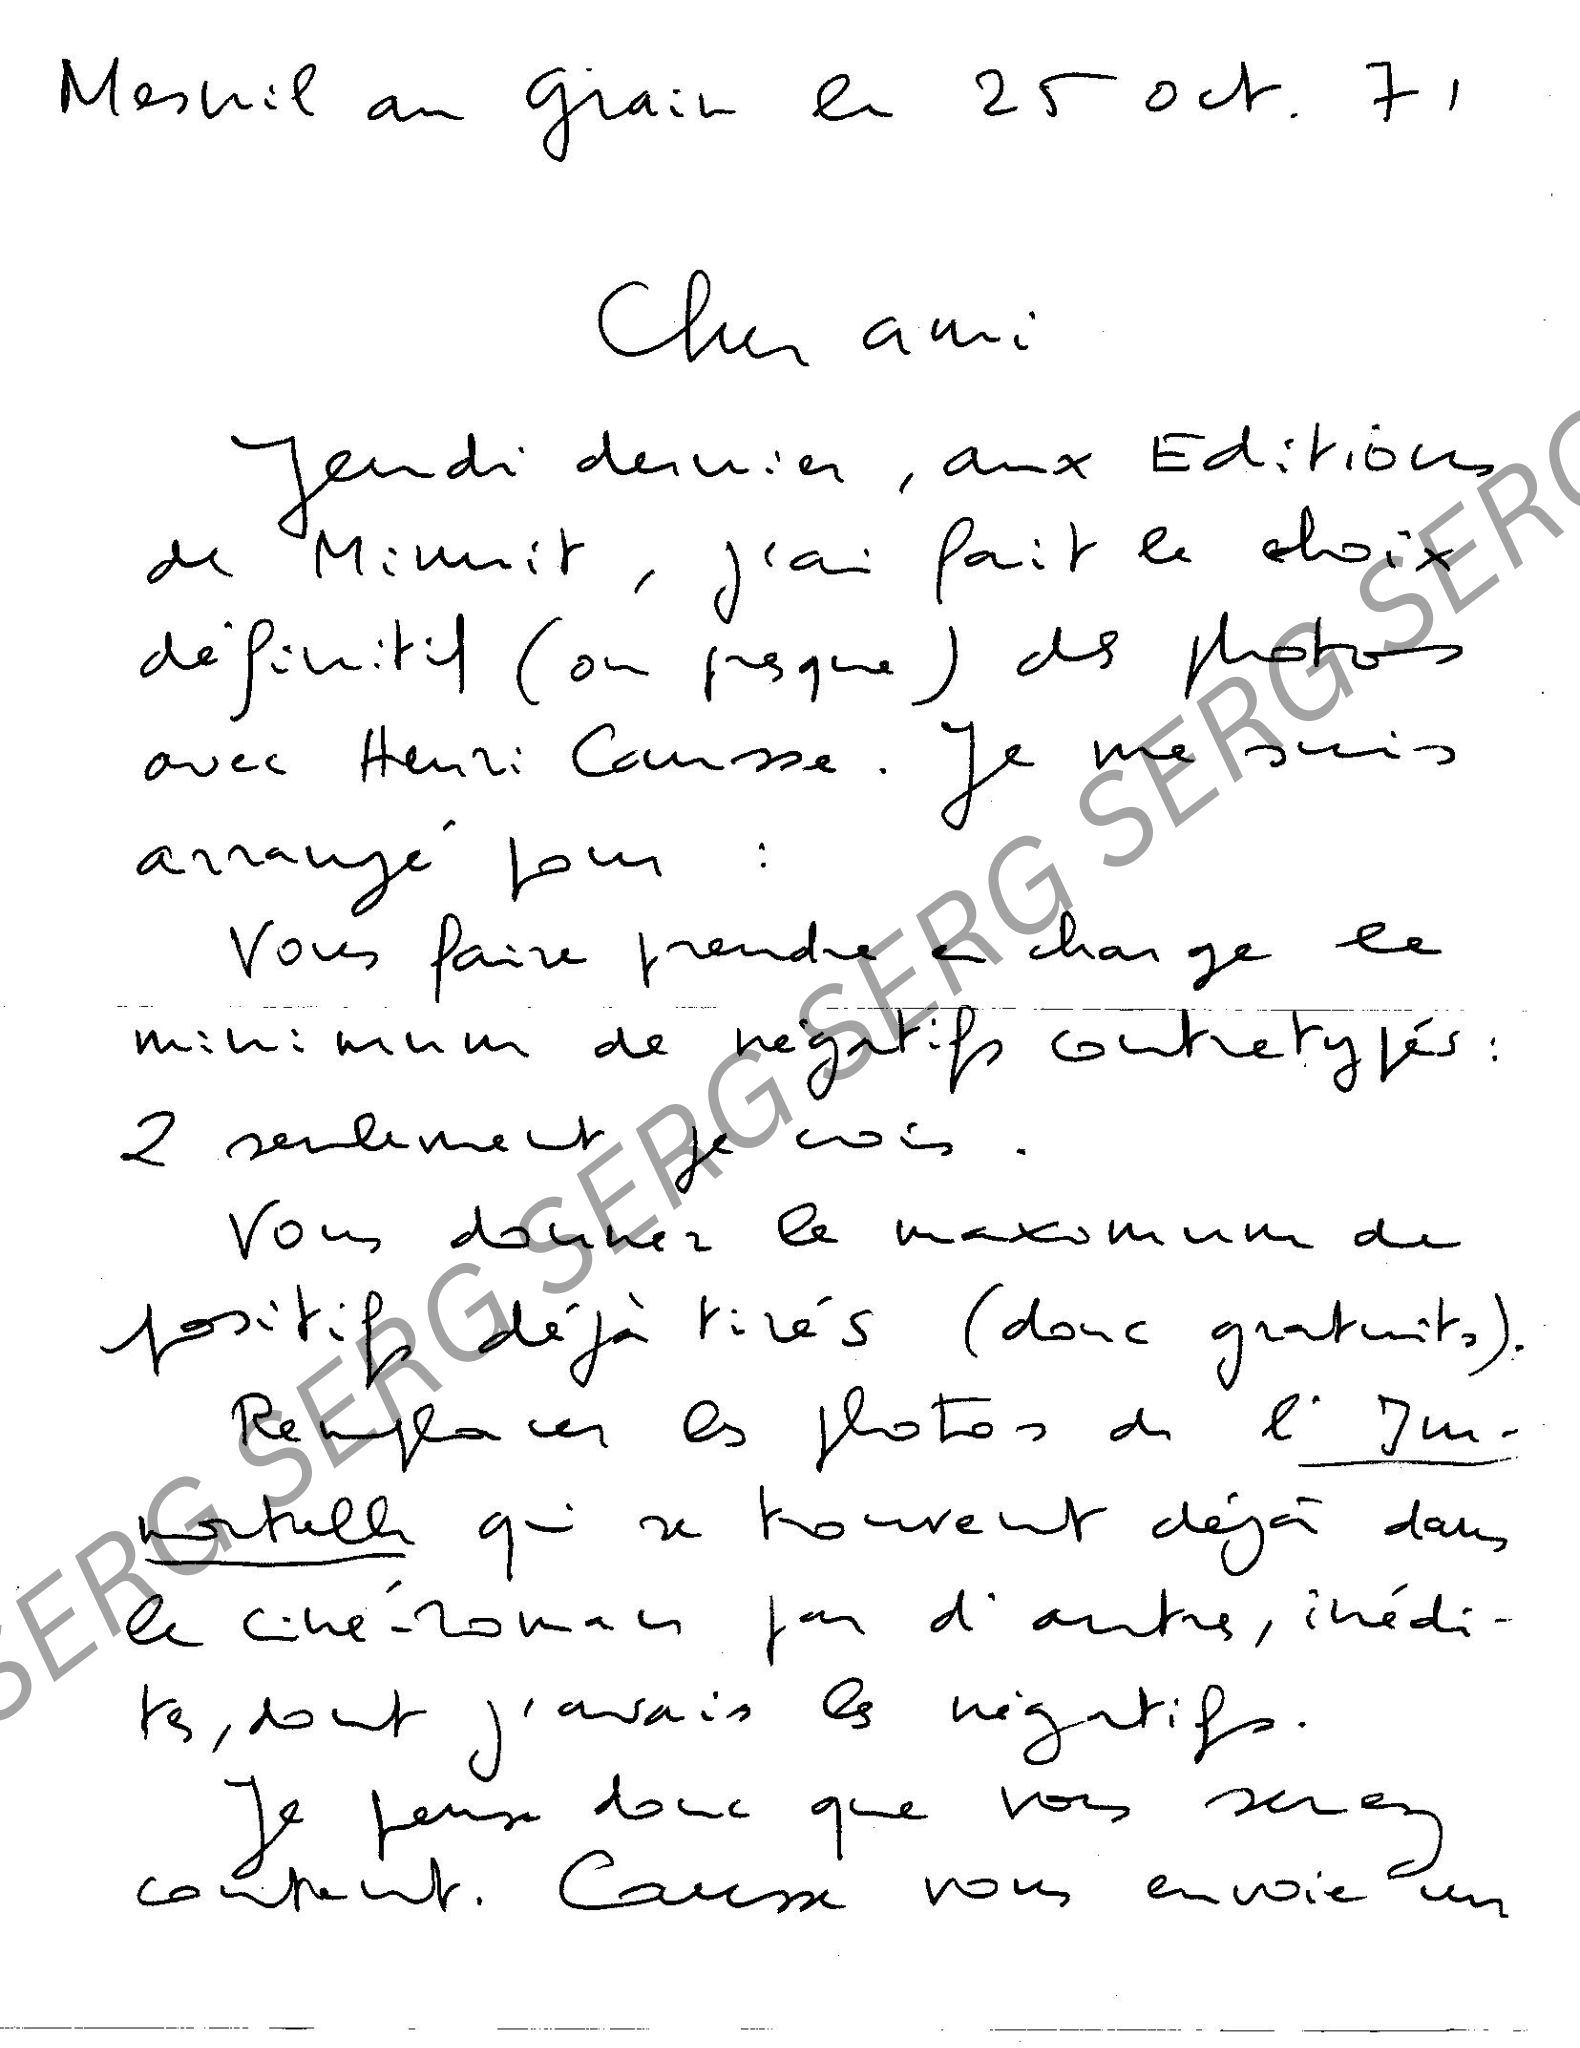 Mesnil au Grain le 25 oct. 71
Cher ami
Jeudi dernier, aux Editions
de Minuit, j'ai fait le choix
définitif (ou presque) des photos
avec Henri Causse. Je me suis
arrangé pour :
Vous faire prendre en charge le
minimum de négatifs contretypés :
2 seulement je crois.
Vous donner le maximum de
positifs déjà tirés (donc gratuits).
Remplacer les photos de l'Im-
mortelle qui se trouvent déjà dans
le ciné-roman par d'autres, inédi-
tes, dont j'avais les négatifs.
Je pense donc que vous serez
content. Causse vous envoie un
SERG SERG SERG SERG SERG SERG SERG SERG